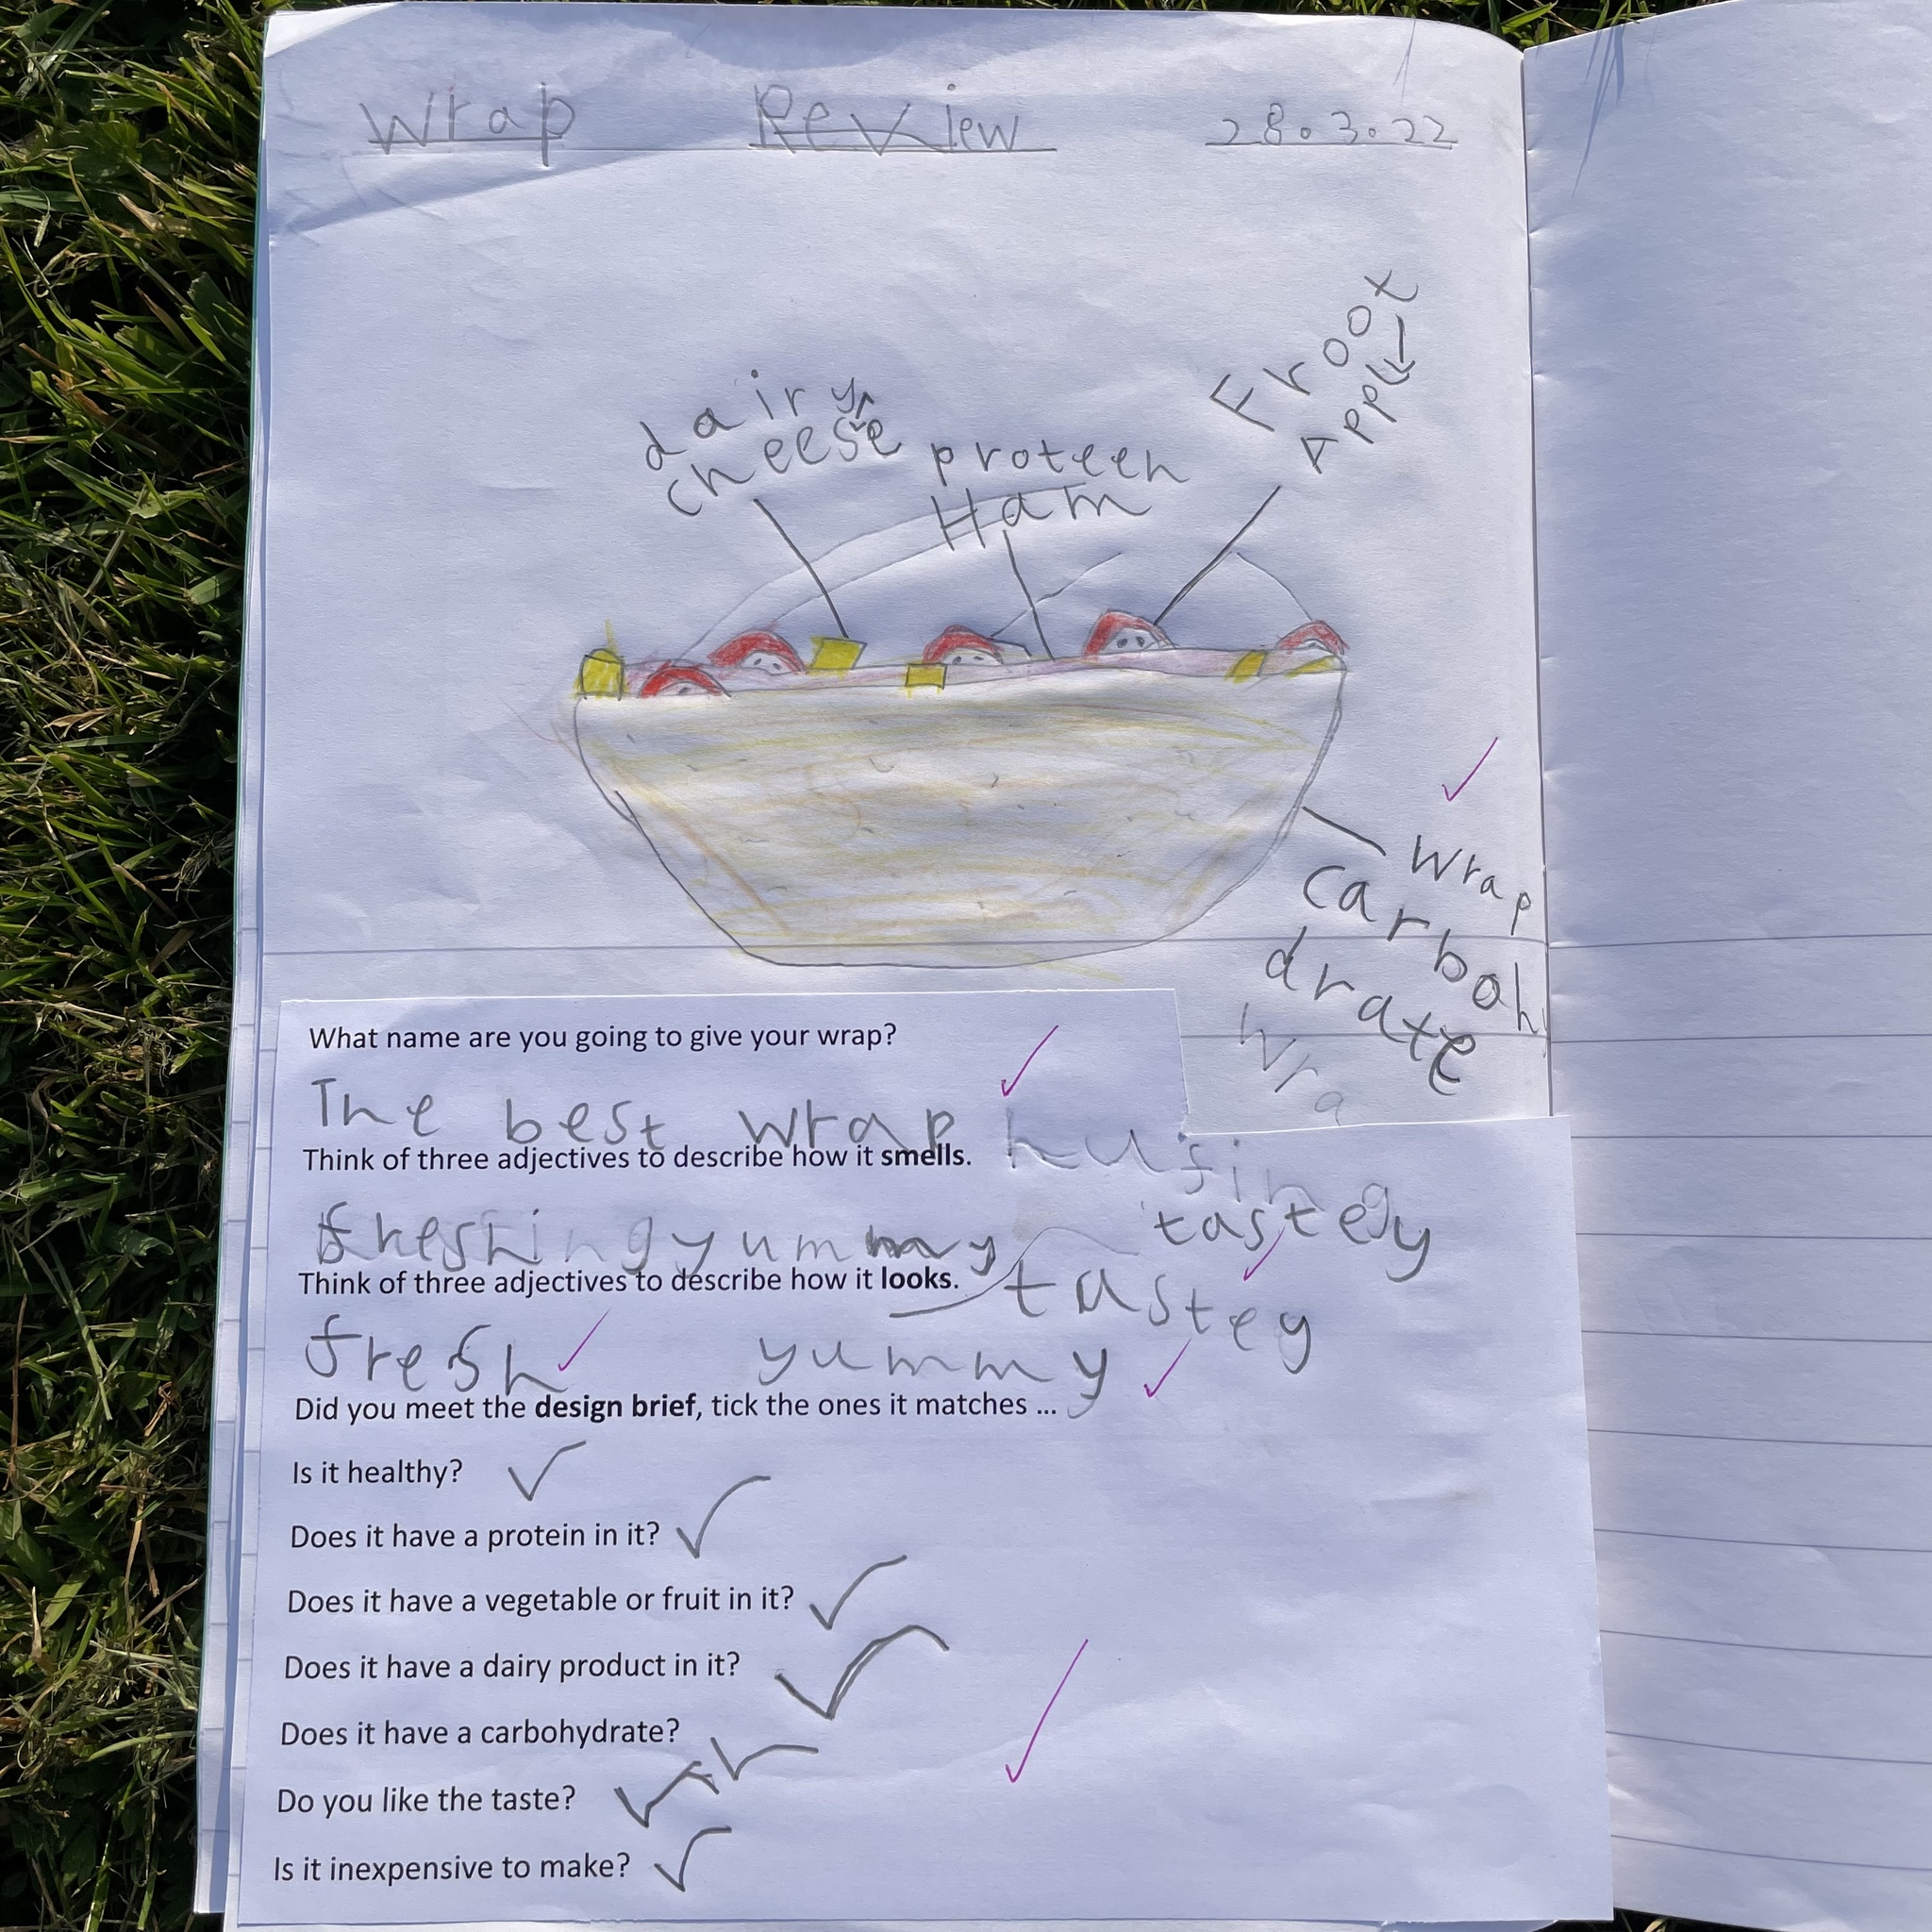 Wrap Review 28.3.22
dairy
cheese
proteen
Ham
Froot
Apple
wrap
carboh
drate
wra
What name are you going to give your wrap?
The best wrap
Think of three adjectives to describe how it smells.
freshing yummy tastey
Think of three adjectives to describe how it looks.
tastey
fresh yummy
Did you meet the design brief, tick the ones it matches ...
Is it healthy? ✓
Does it have a protein in it? ✓
Does it have a vegetable or fruit in it? ✓
Does it have a dairy product in it? ✓
Does it have a carbohydrate? ✓
Do you like the taste? ✓
Is it inexpensive to make? ✓